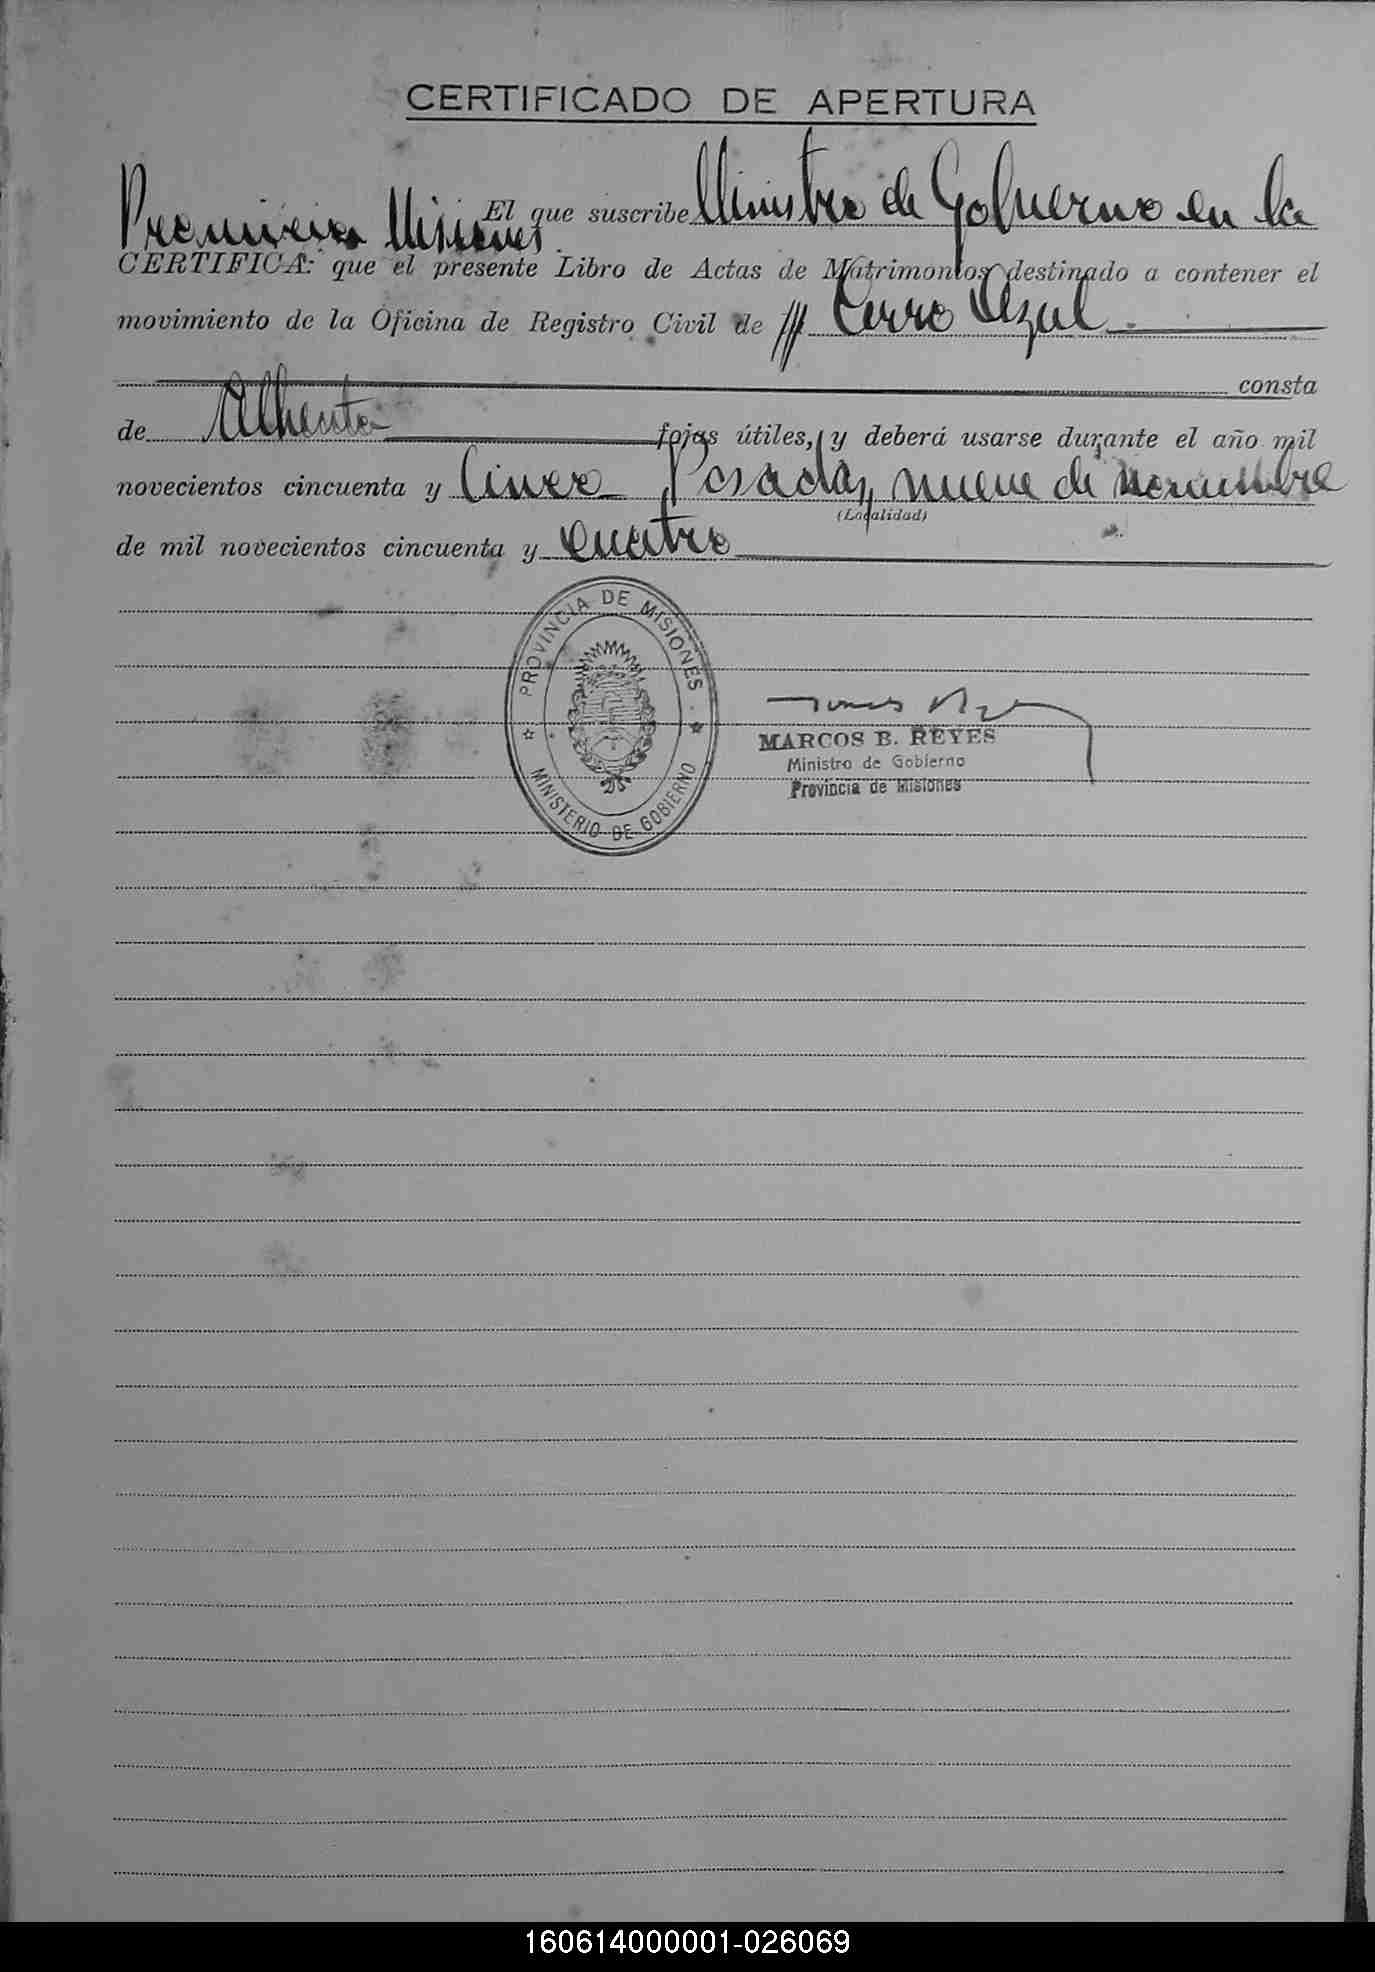 CERTIFICADO DE APERTURA
El que suscribe Ministro de Gobierno en la
Provincia Misiones.
CERTIFICA: que el presente Libro de Actas de Matrimonios destinado a contener el
movimiento de la Oficina de Registro Civil de Cerro Azul.
consta
de Ochenta fojas útiles, y deberá usarse durante el año mil
novecientos cincuenta y Cinco Posadas, nueve de noviembre
(Localidad)
de mil novecientos cincuenta y cuatro
PROVINCIA DE MISIONES
MINISTERIO DE GOBIERNO
MARCOS B. REYES
Ministro de Gobierno
Provincia de Misiones
160614000001-026069